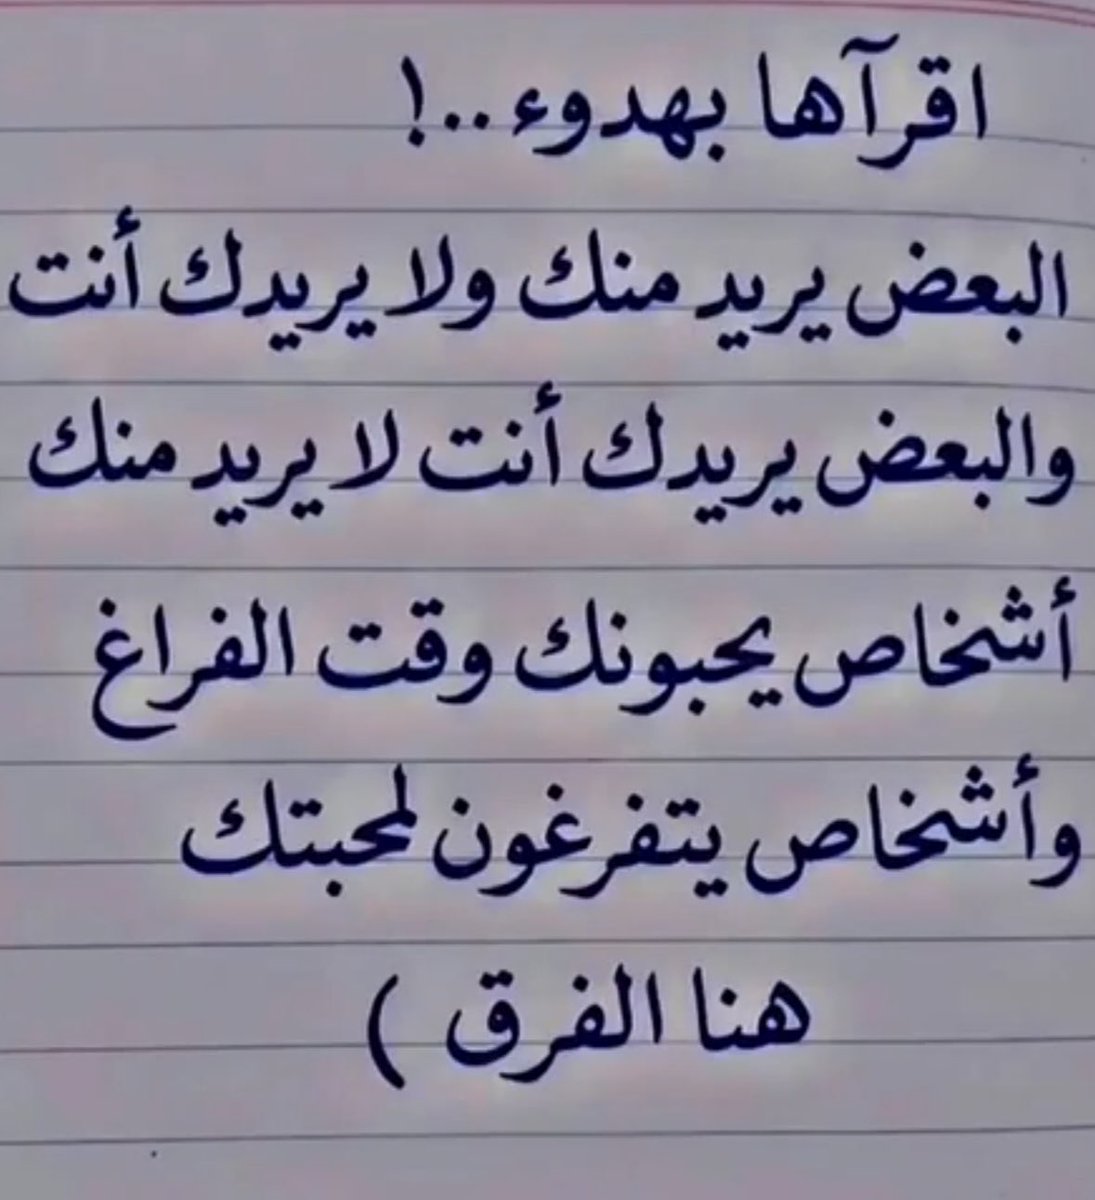 اقرآها بهدوء..!
البعض يريد منك ولا يريدك أنت
والبعض يريدك أنت لا يريد منك
أشخاص يحبونك وقت الفراغ
وأشخاص يتفرغون لمحبتك
هنا الفرق )